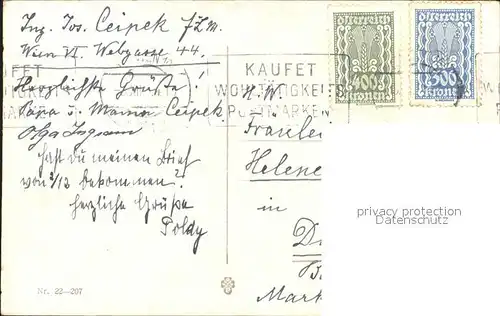 Ing. Jos. Ceipek
Wien VI. Webgasse 44.
Herzlichste Grüße!
Papa u. Mama Ceipek
Olga
hast du meinen Brief
von 2/12 bekommen?
herzliche Grüße
Poldy
Nr. 22—207
KAUFET
WOHLTÄTIGKEITS
POSTMARKEN
österreich
400
kronen
österreich
500
kronen
H. W.
Fräulein
Helene
in
privacy protection
Datenschutz